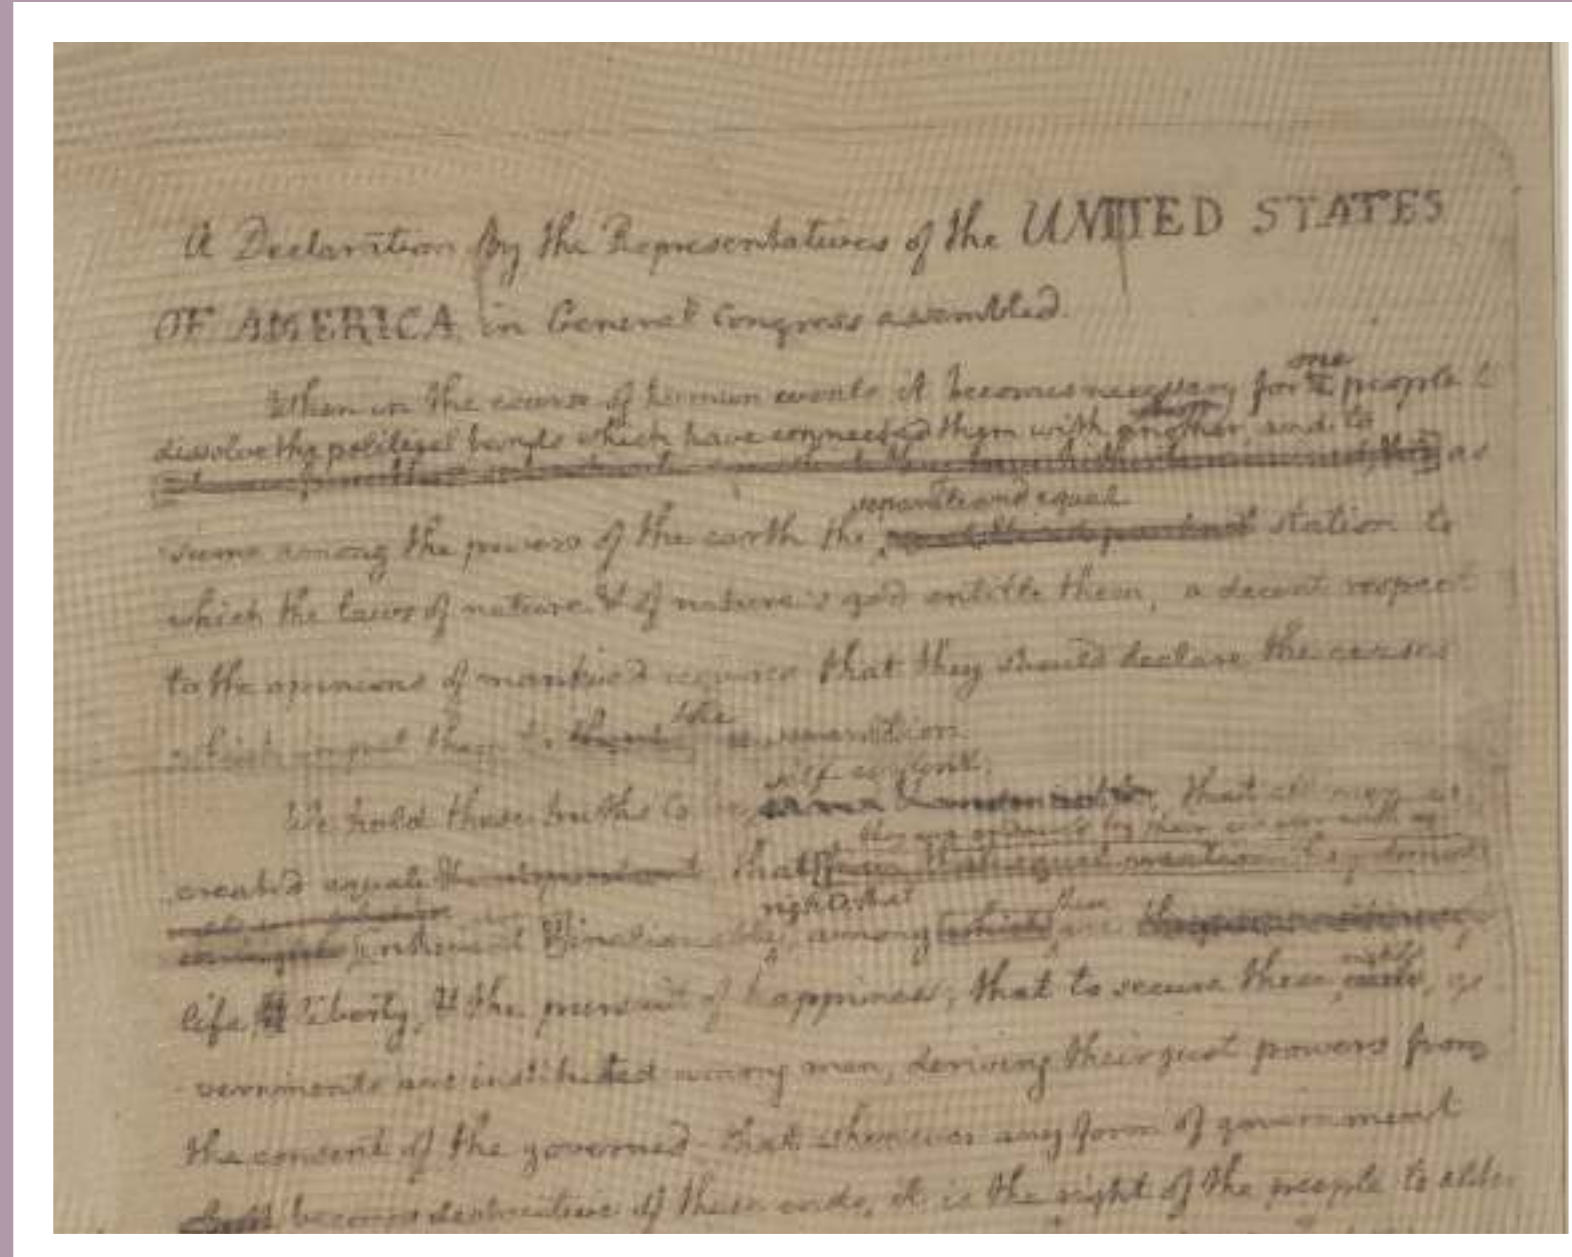 A Declaration by the Representatives of the UNITED STATES
OF AMERICA, in General Congress assembled.
one
When in the course of human events it becomes necessary for a people to
dissolve the political bands which have connected them with another, and to
as
separate and equal
-sume among the powers of the earth the station to
which the laws of nature & of nature's god entitle them, a decent respect
to the opinions of mankind requires that they should declare the causes
the
which impel them to separation.
self-evident,
We hold these truths to be that all men are
they are endowed by their creator with
created equal that from that equal creation
rights; that these
inherent & inalienable among which are
rights
life, liberty, & the pursuit of happiness; that to secure these ends, go-
-vernments are instituted among men, deriving their just powers from
the consent of the governed; that whenever any form of government
shall becomes destructive of these ends, it is the right of the people to alter